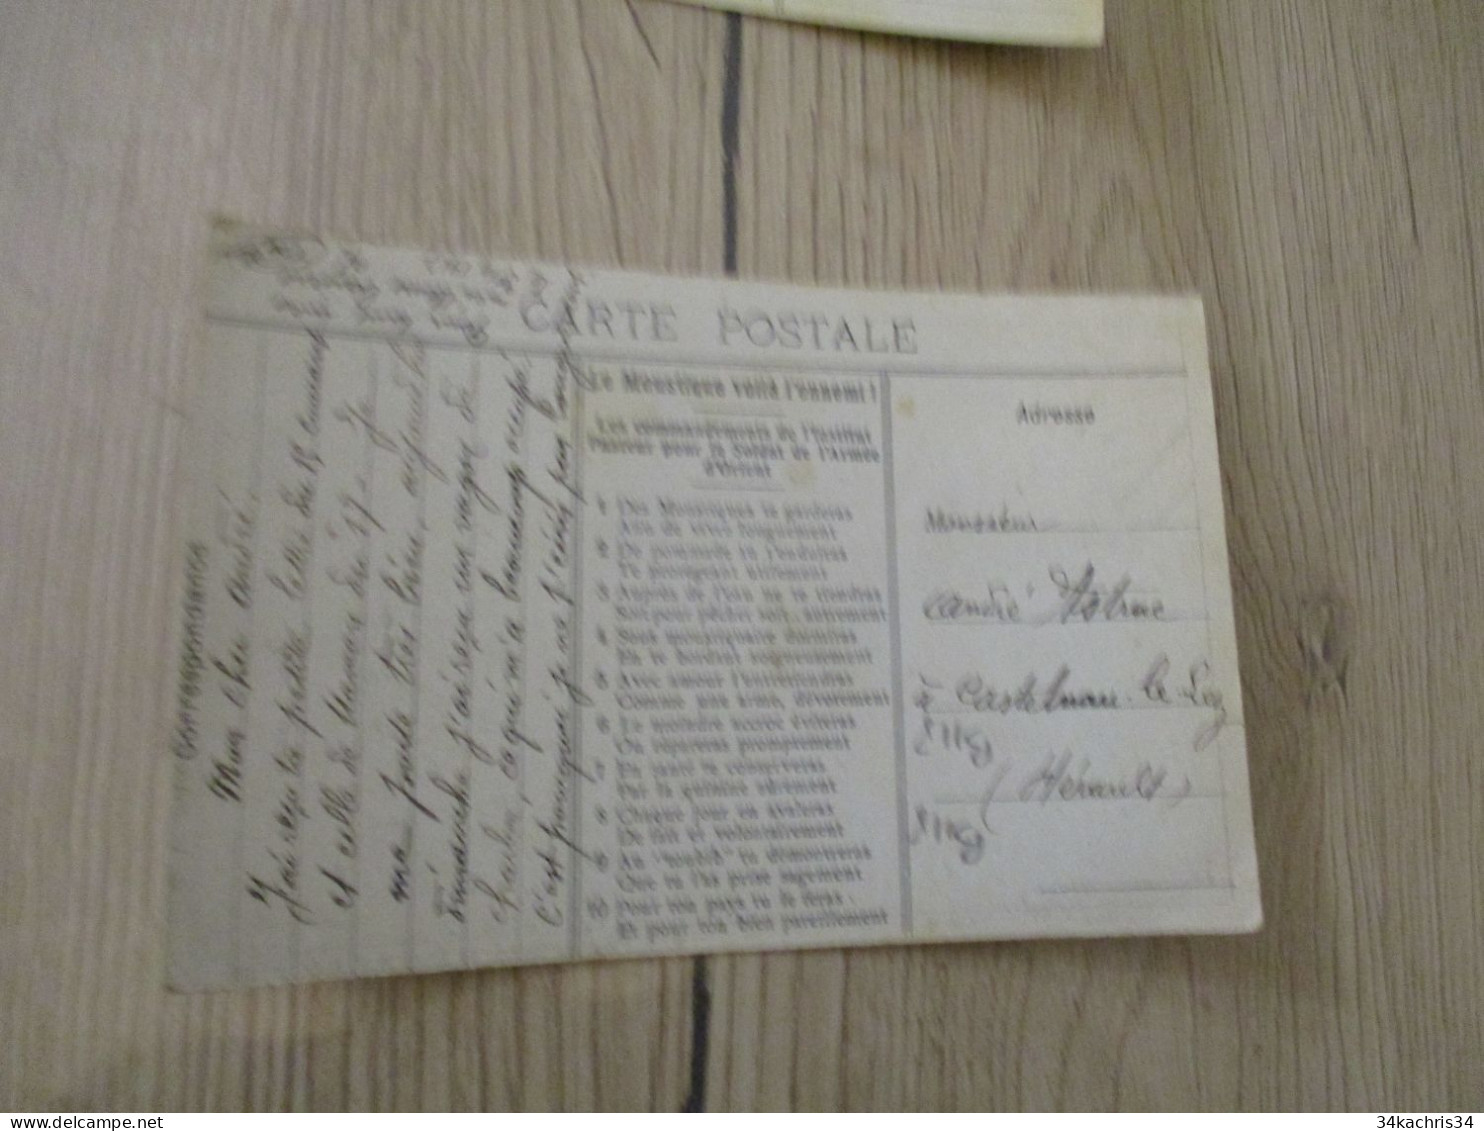 CARTE POSTALE
Correspondance
Mon cher andré.
J'ai reçu ta petite lettre du 13 courant
et celle de Maman du 17 - Je
me porte très bien, aujourd'hui
dimanche j'ai reçu un wagon de
c'est pourquoi je ne t'écris pas longuement
Le Moustique voilà l'ennemi !
Les commandements de l'Institut
Pasteur pour le Soldat de l'Armée
d'Orient
1 Des Moustiques te garderas
Afin de vivre longuement
2 De pommade tu t'enduiras
Te protégeant utilement
3 Auprès de l'eau ne te tiendras
Soit pour pêcher soit autrement
4 Sous moustiquaire dormiras
En te bordant soigneusement
5 Avec amour l'entretiendras
Comme une arme, dévotement
6 Le moindre accroc éviteras
Ou répareras promptement
7 En santé te conserveras
Par la quinine sûrement
8 Chaque jour en avaleras
De fait et volontairement
9 Au "toubib" tu démontreras
Que tu l'as prise sagement
10 Pour ton pays tu le feras :
Et pour ton bien pareillement
Adresse
Monsieur
André Astruc
à Castelnau-le-Lez
(Hérault)
34kachris34
www.delcampe.net